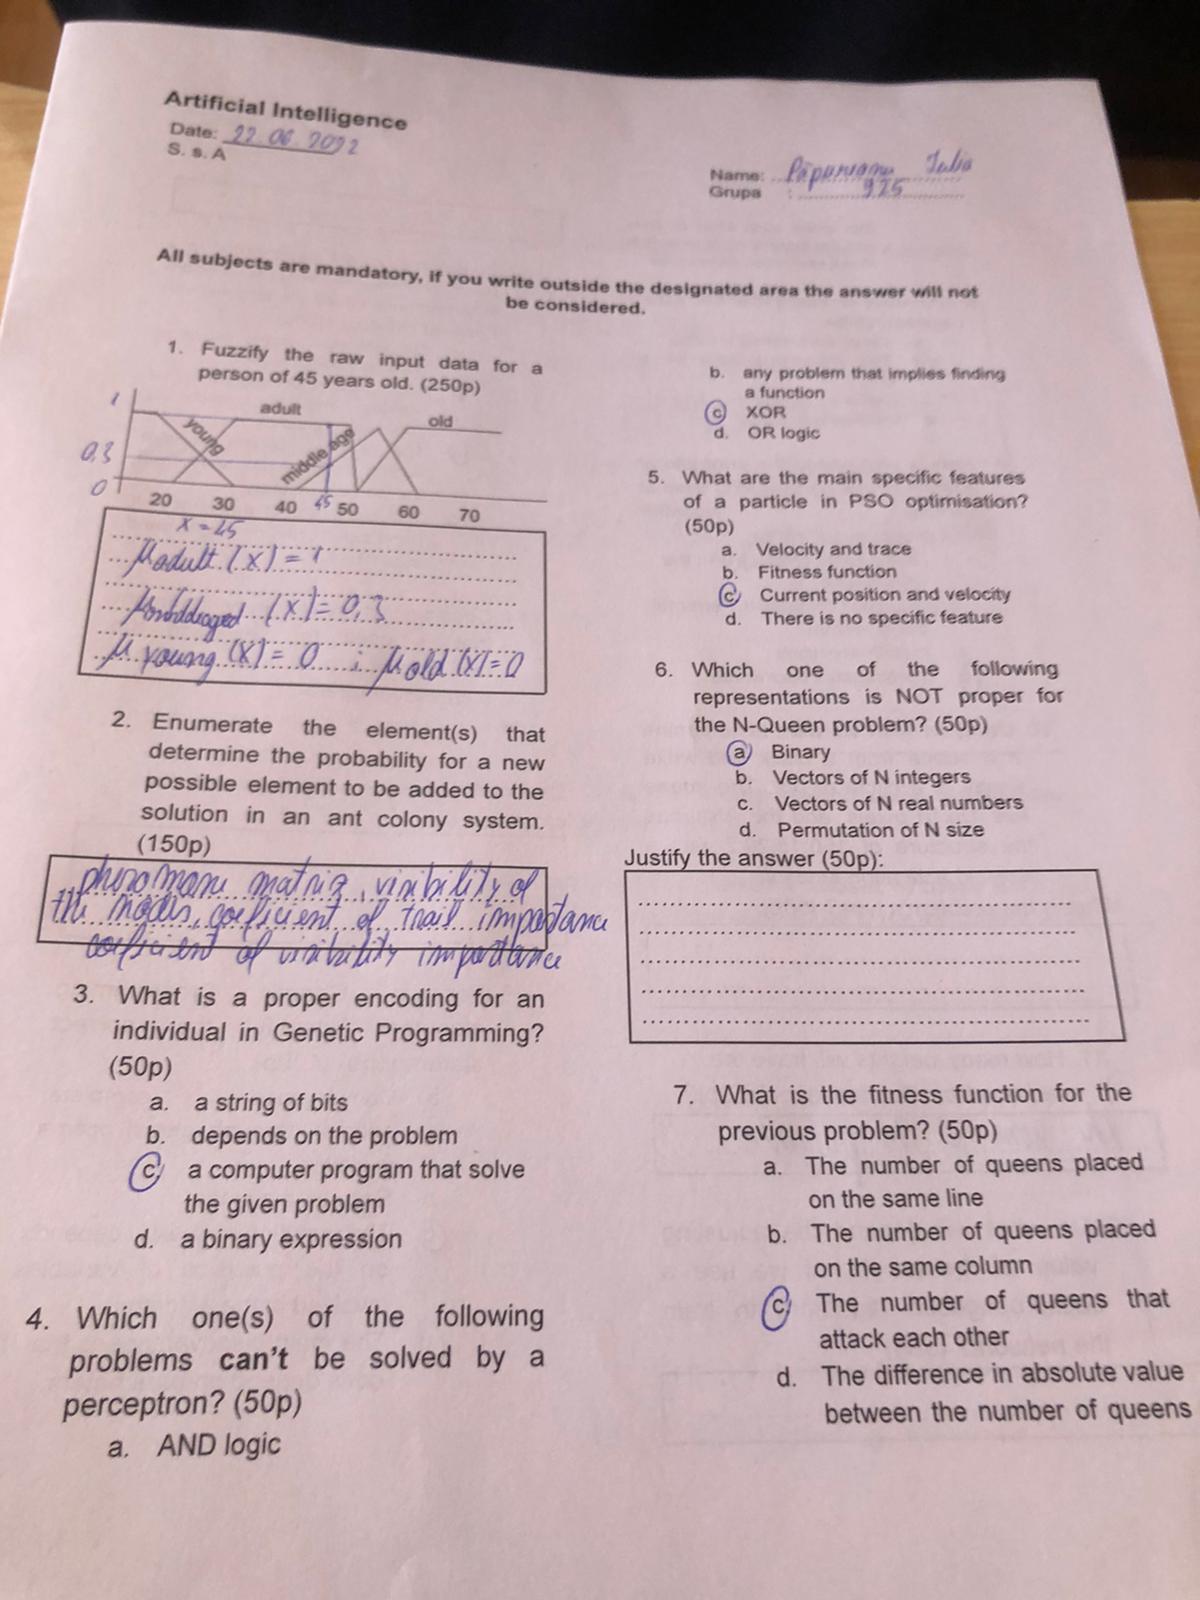 Artificial Intelligence
Date: 22.06.2022
S. s. A
Name: Iulia
Grupa : 925
All subjects are mandatory, if you write outside the designated area the answer will not
be considered.
1. Fuzzify the raw input data for a
person of 45 years old. (250p)
1
adult
old
young
middle age
0,3
0
20 30 40 45 50 60 70
x = 45
μ adult (x) = 1
(x) = 0,3
μ young (x) = 0 ; μ old (x) = 0
2. Enumerate the element(s) that
determine the probability for a new
possible element to be added to the
solution in an ant colony system.
(150p)
matrix, visibility of
the nodes, coefficient of trail importance
coefficient of visibility importance
3. What is a proper encoding for an
individual in Genetic Programming?
(50p)
a. a string of bits
b. depends on the problem
c. a computer program that solve
the given problem
d. a binary expression
4. Which one(s) of the following
problems can't be solved by a
perceptron? (50p)
a. AND logic
b. any problem that implies finding
a function
c. XOR
d. OR logic
5. What are the main specific features
of a particle in PSO optimisation?
(50p)
a. Velocity and trace
b. Fitness function
c. Current position and velocity
d. There is no specific feature
6. Which one of the following
representations is NOT proper for
the N-Queen problem? (50p)
a. Binary
b. Vectors of N integers
c. Vectors of N real numbers
d. Permutation of N size
Justify the answer (50p):
7. What is the fitness function for the
previous problem? (50p)
a. The number of queens placed
on the same line
b. The number of queens placed
on the same column
c. The number of queens that
attack each other
d. The difference in absolute value
between the number of queens